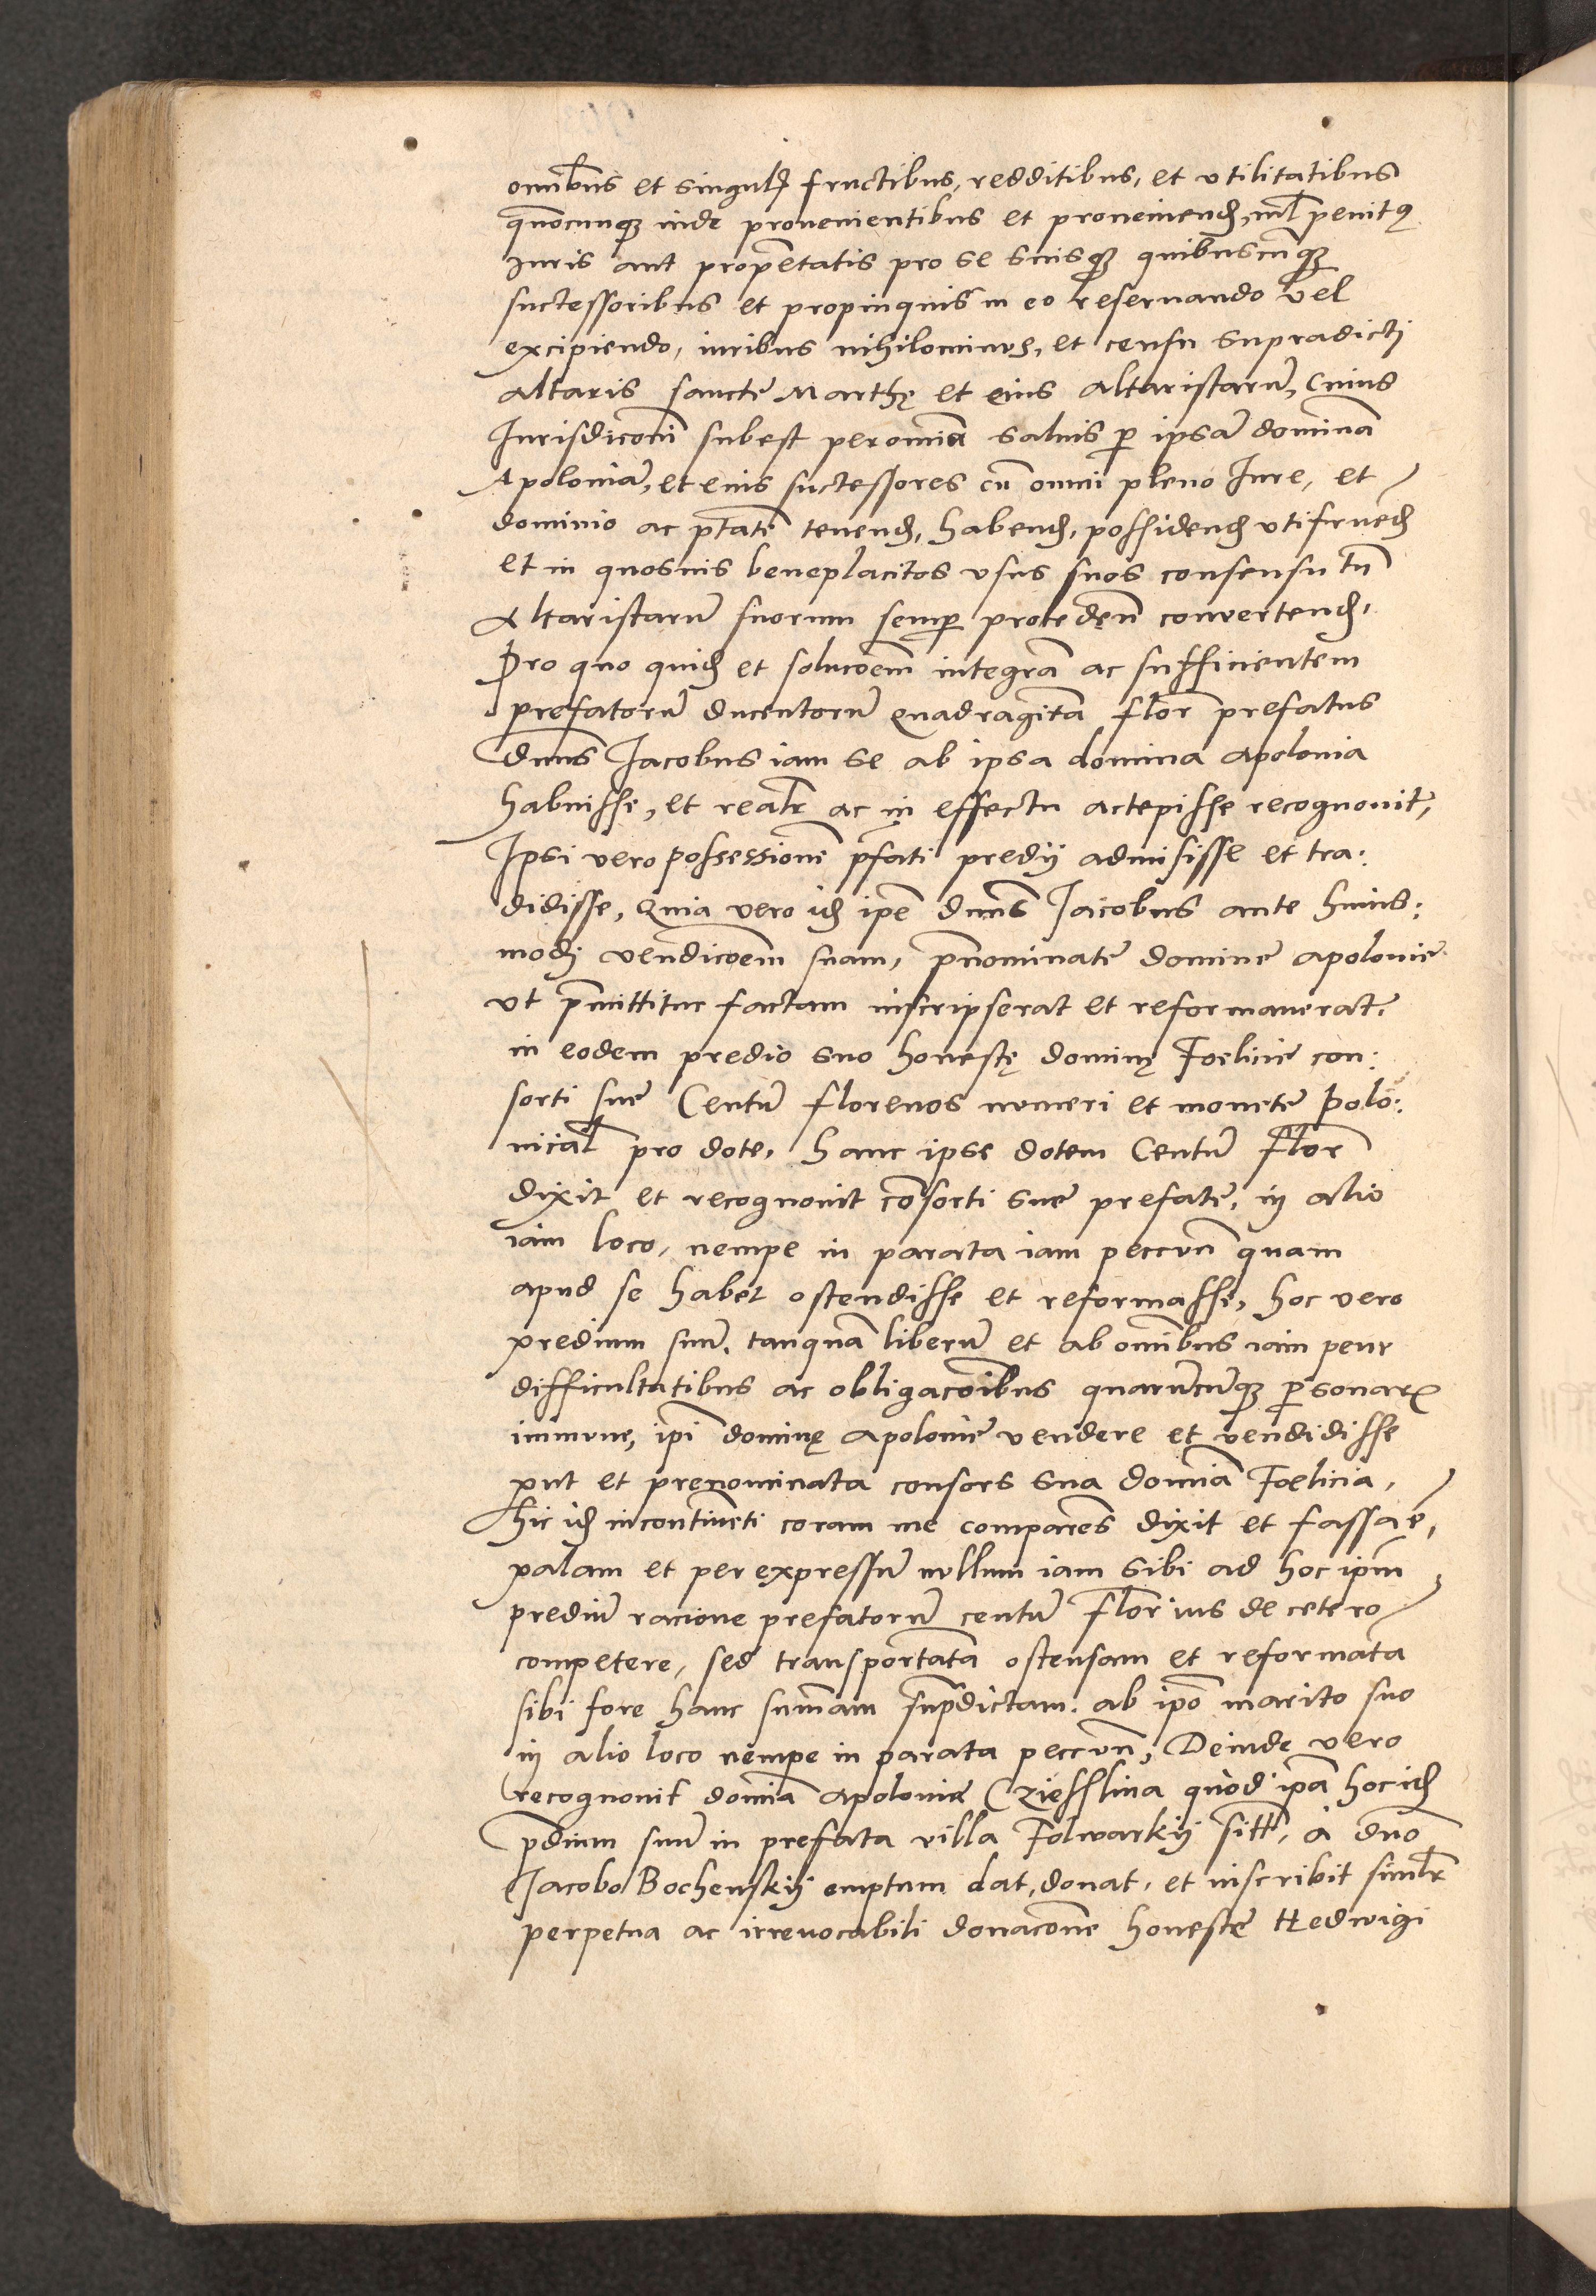 omnibus et singul fructibus, redditibus, et vtilitatibus
quocunq3 inde prouenientibus et proueniend, nil penitꝰ
Iuris aut proprietatis pro se suisq3 quibuscunq3
successoribus et propinquis in eo reseruando vel
excipiendo, iuribus nihilominus, et censu supradicti
altaris sancte Marthę et eius altaristarū, Cuius
Iurisdiconi subest per omīa saluis p ipsam dominā
Apoloniā, et eius successores cū omni pleno Iure, et
dominio ac ptāte tenend, habend, possidend vtifruēd
et in quosuis beneplacitos vsus suos consensu tn̄
Altaristarū suorum semp convertend,
Pro quo quid et solucōem integrā ac sufficientem
prefatorū ducentorū quadraginta flor̄ prefatus
dn̄us Iacobus iam se ab ipsa domina apolonia
habuisse, et realr ac in effectu accepisse recognouit,
Ipsi vero possessionē pfati predij admisisse et tra:
didisse, Quia vero id ipe dn̄us Iacobus ante huius:
modi vendicōem suam, pnominate domine apolonie
vt pmittitur factam inscripserat et reformauerat,
in eodem predio suo honestę dominę Foelicie con:
sorti sue Centū florenos numeri et monete polo:
nical pro dote, hanc ipse dotem Centū flor̄
dixit et recognouit cōsorti sue prefate, in alio
iam loco, nempe in parata iam peccun̄ quam
apud se habet ostendisse et reformasse, hoc vero
predium suū, tanquā liberū et ab omībus iam penr
difficultatibus ac obligacōibus quarūcunq3 psonarꝝ
immune, ipi dominę apolonie vendere et vendidisse
put et prenominata consors sua domīa Foelicia,
hic id incontinēti coram me comparēs dixit et fassa ē,
palam et per expressū nullum iam sibi ad hoc ipm
prediū racione prefatorū centū flor̄ ius de cetero
competere, sed transportatā ostensam et reformatā
sibi fore hanc summam supdictam, ab ipo marito suo
in alio loco nempe in parata peccun̄, Deinde vero
recognouit domīa apolonia Cziesslina quod ipā hoc id
pdium suū in prefata villa Folwarkij sitū, à dn̄o
Iacobo Bochenskij emptum dat, donat, et inscribit simlr
perpetua ac irreuocabili donacōne honeste Hedwigi